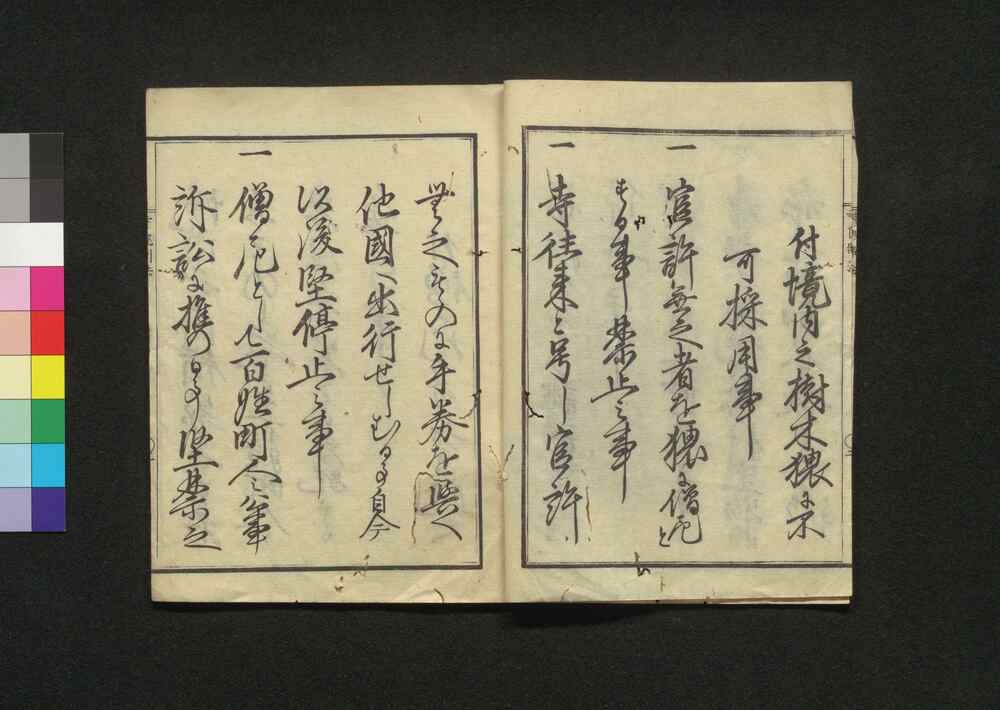 付境内之樹木猥ニ不
可採用事
一
官許無之者を猥ニ僧尼と
する事禁止之事
一
寺往来と号し官許
無之ものニ手券を與へ
他國へ出行せしむる事自今
以後堅停止之事
一
僧尼として百姓町人之公事
訴訟ニ携の事堅禁之